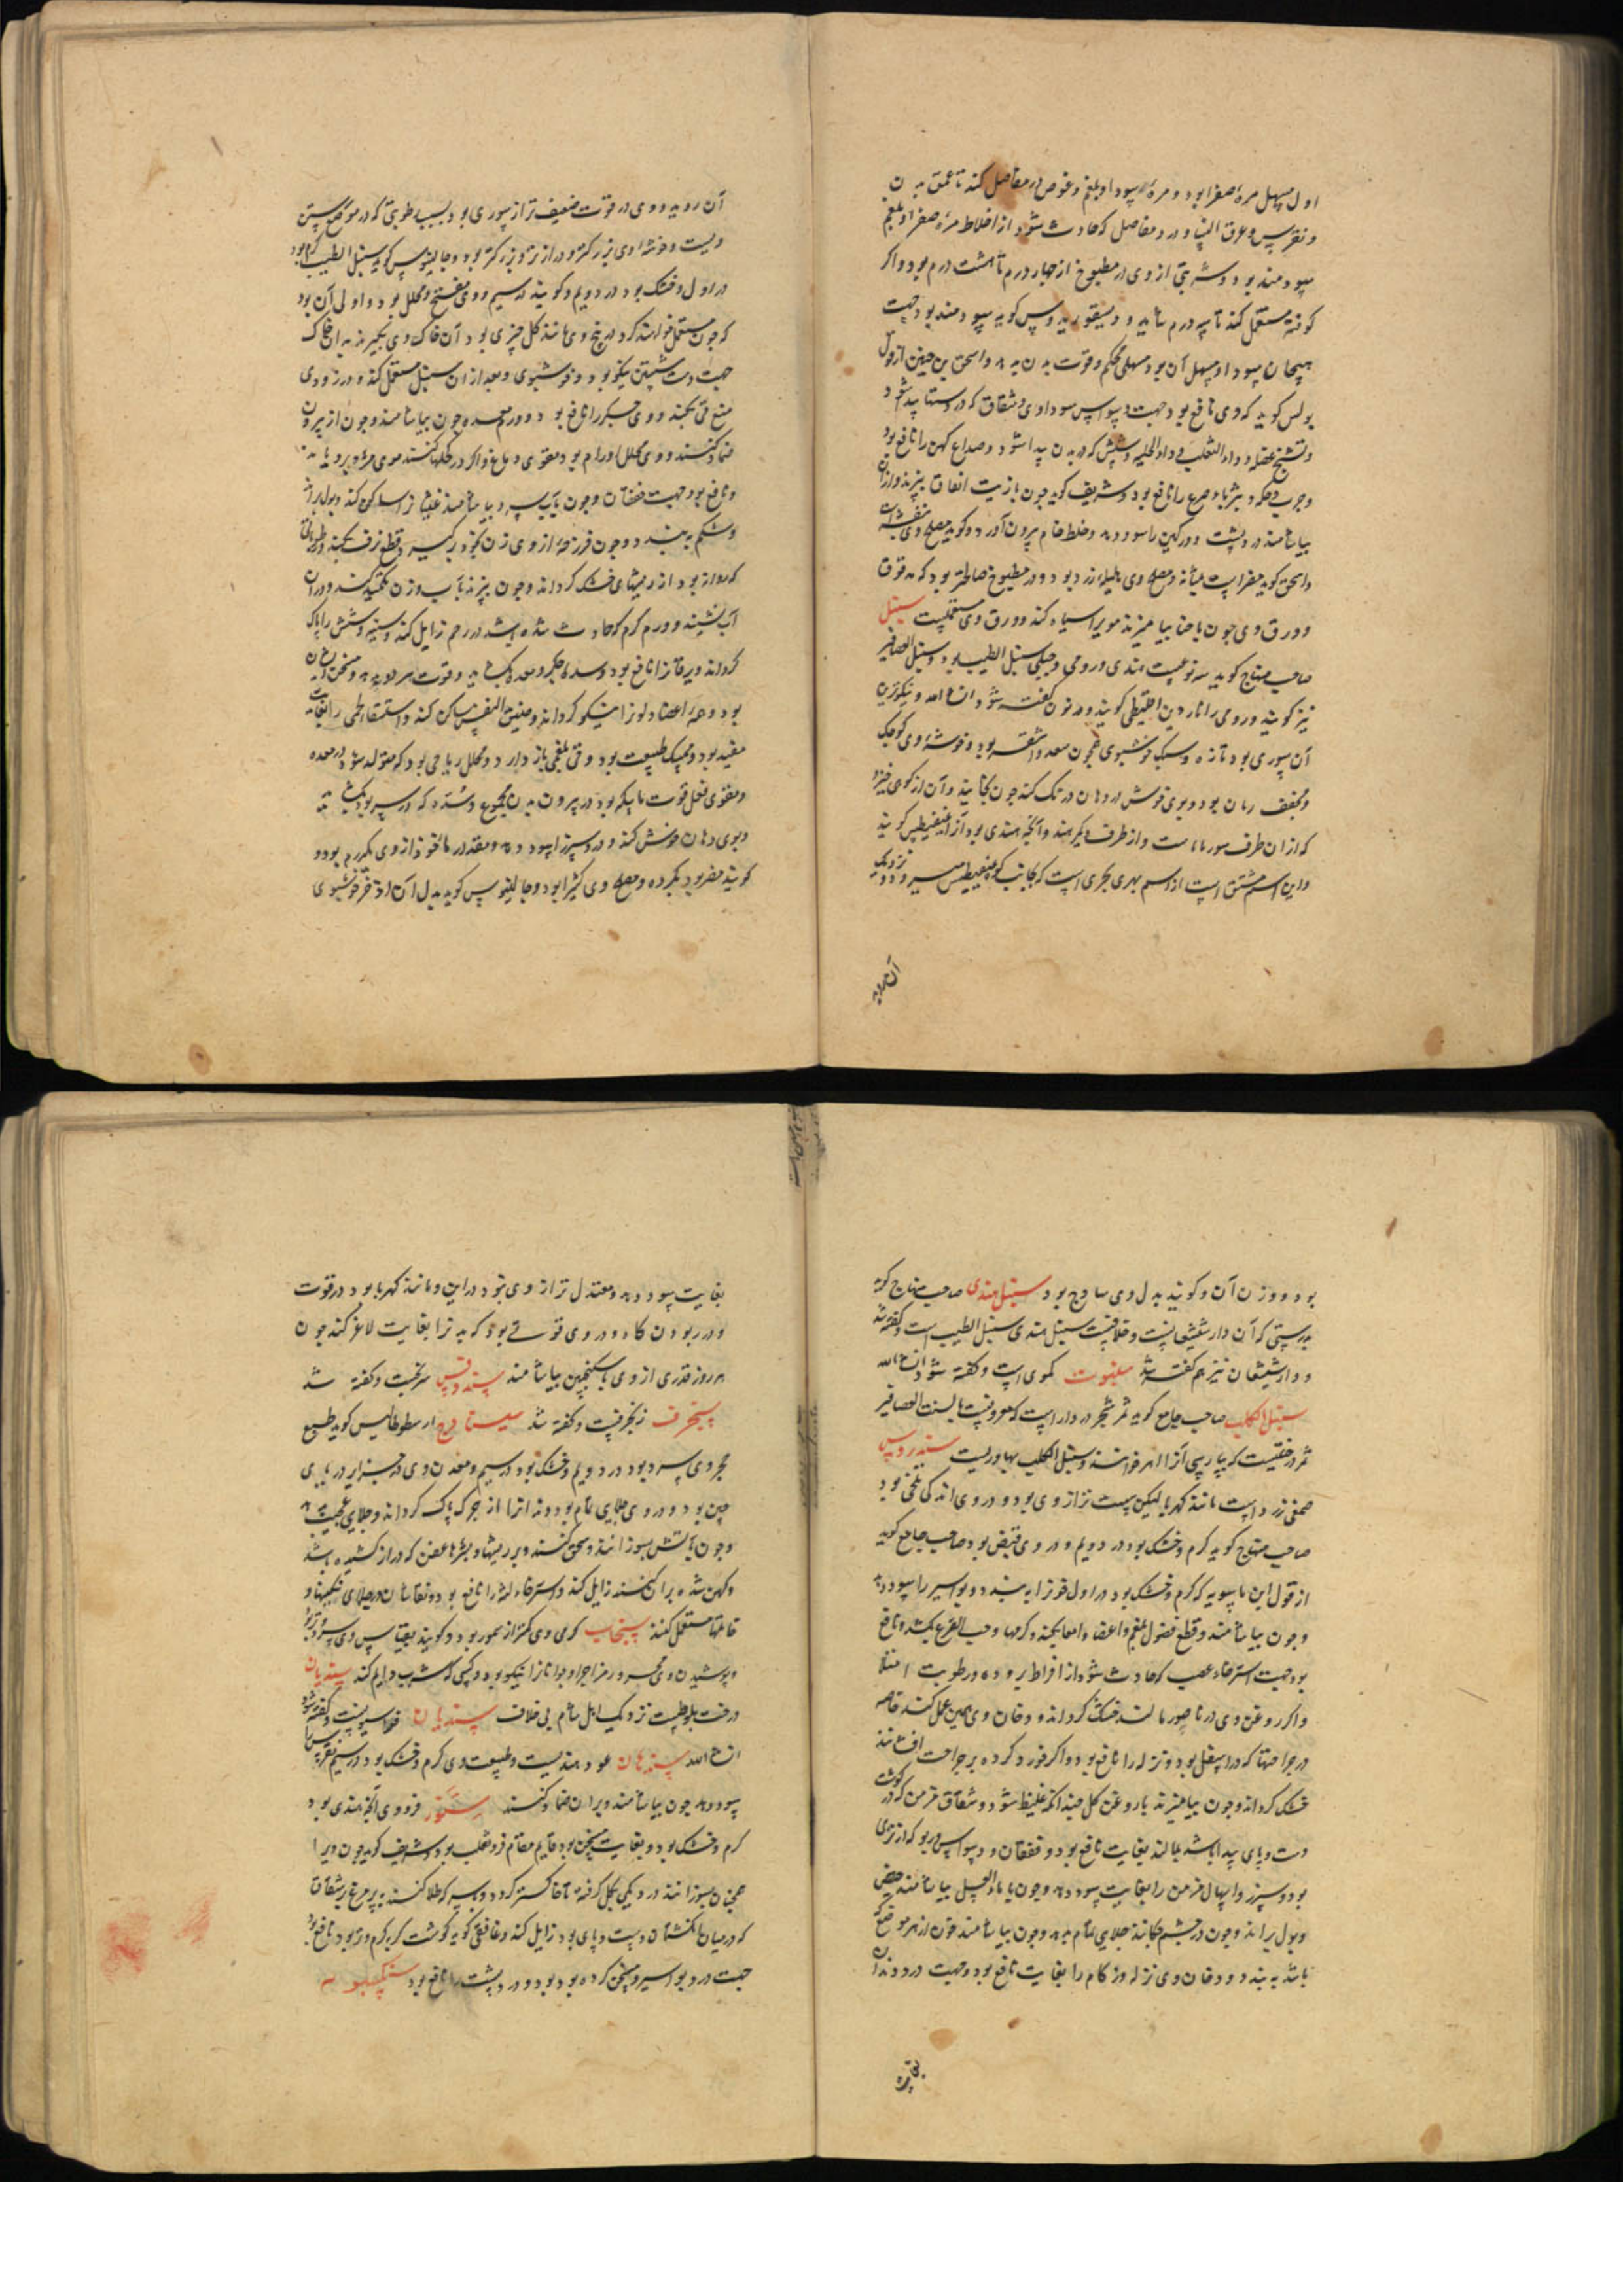 اول مسهل مره صفرا بود و مره سودا و بلغم و غوص در مفاصل کند تا عمق بدن
و نقرس و عرق النسا و درد مفاصل که حادث شود از اخلاط مره صفرا و بلغم
سودمند بود و شربتی از وی در مطبوخ از چهار درم تا هشت درم بود و اگر
کوفته مستعمل کنند تا سه درم شاید و دیسقوریدوس گوید سودمند بود جهت
هیجان سودا و مسهل آن بود مسهلی محکم و قوت بدن بدهد و اسحق بن حنین از قول
بولس گوید که وی نافع بود جهت وسواس سوداوی و شقاق که در دست پیدا شود
و تشنج عضل و داء الثعلب و داء الحیه و شپش که در بدن پیدا شود و صداع کهن را نافع بود
و جرب و حکه و بثرها و صرع را نافع بود و شریف گوید چون با زیت انفاق بپزند و از آن
بیاشامند درد پشت و ورکین را سود دهد و خلط خام بیرون آورد و گویند مصلح وی بنفشه است
و اسحق گوید مضر است بمثانه و مصلح وی هلیله زرد بود و در مطبوخ صالحتر بود که مدقوق
و ورق وی چون با حنا بیامیزند موی را سیاه کند و ورق وی مستعملست سنبل
صاحب منهاج گوید سه نوعست هندی و رومی و جبلی سنبل الطیب بود و سنبل العصافیر
نیز گویند و رومی را ناردین اقلیطی گویند و در نون گفته شود ان شاء الله و نیکوترین
آن سوری بود تازه و سبک خوشبوی همچون سعد و اشقر بود و خوشه وی کوچک
و مجفف زبان بود و بوی خوش در دهان درنگ کند چون بخایند و آن از کوهی خیزد
که از آن طرف سوریاست و از طرف دیگر هند و آنچه هندی بود آنرا غنغیطس گویند
و این اسم مشتق است از اسم نهری بحری است که بجانب کوه غنغیطس میرود و نزدیک
آن روید
آن روید و وی در قوت ضعیف تر از سوری بود بسبب رطوبتی که در موضع رستن
ویست و خوشه وی بزرگتر و درازتر و بزرگتر بود و جالینوس گوید سنبل الطیب گرم بود
در اول و خشک بود در دویم و گویند در سیم و وی مفتح و محلل بود و اولی آن بود
که چون مستعمل خواهند کرد در بیخ وی مانند گل چیزی بود آن خاک وی بگیرند بدان خاک
جهت دست شستن نیکو بود و خوشبوی و بعد از آن سنبل مستعمل کنند و در زودی
منع قی بکند و وی جگر را نافع بود و ورم معده چون بیاشامند و چون از بیرون
ضماد کنند و وی محلل اورام بود و مقوی دماغ و اگر در کحلها کنند موی مژه برویاند
و نافع بود جهت خفقان و چون بآب سرد بیاشامند غثیان را ساکن کند و بول براند
و شکم ببندد و چون فرزجه از وی زن بخود برگیرد قطع نزف بکند و رطوباتی
که روانه بود از رحمهای خشک گرداند و چون بپزند بآب و زن تکمید کند و در آن
آب نشیند ورم گرم که حادث شده باشد در رحم زایل کند و سینه و شش را پاک
گرداند و یرقان را نافع بود و سده جگر و معده بگشاید و قوت هر دو بدهد و مسخن ایشان
بود و همه اعضا و لون را نیکو گرداند و ضیق النفس را ساکن کند و استسقا لحمی را بغایت
مفید بود و ممسک طبیعت بود و قی بلغمی باز دارد و محلل ریاحی بود که متولد شود در معده
و مقوی فعل قوت ماسکه بود در بیرون بدن مجموع و سده که در سر بود بگشاید
و بوی دهان خوش کند و درد سپرز را سود دهد و مقدار ماخوذ از وی یکدرم بود و
گویند مضر بود بگرده و مصلح وی کثیرا بود و جالینوس گوید بدل آن اذخر خوشبوی
بود دو وزن آن و گویند بدل وی ساذج بود سنبل هندی صاحب منهاج گوید
بدرستی که آن دارشیشعانست و خلافیست سنبل هندی سنبل الطیب است و گفته شد
و دارشیشعان نیز هم گفته شد سنبوت کموی است و گفته شود ان شاء الله
سنبل الکلب صاحب جامع گوید ثمر شجر دردار است که معروفست بلسان العصافیر
ثمر درختیست که بپارسی آنرا اهر خوانند و سنبل الکلب بهاوریست سندروس
صمغی زرد است مانند کهربا لیکن سست تر از وی بود و در وی اندکی تلخی بود
صاحب منهاج گوید گرم و خشک بود در دویم و در وی قبض بود صاحب جامع گوید
از قول ابن ماسویه که گرم و خشک بود در اول خون را ببندد و بواسیر را سود دهد
و چون بیاشامند و قطع فضول بلغم و اعضاء و امعا بکند و کرمها و حب القرع بکشد و نافع
بود جهت استرخاء عصب که حادث شود از افراط برودت و رطوبت و امتلا
و اگر روغن وی در ناصور مالند خشک گرداند و دخان وی همین عمل کند خاصه
در جراحتها که در اسفل بود و نزله را نافع بود و اگر خورد کرده بر جراحت افشانند
خشک گرداند و چون بیامیزند با روغن گل چندانکه غلیظ شود و شقاق مزمن که در گوشت
دست و پای پیدا باشد بمالند بغایت نافع بود و خفقان و وسواس و ربو که از تری
بود و سپرز و اسهال مزمن را بغایت سود دهد و چون با ماء العسل بیاشامند حیض
و بول براند و چون در چشم چکانند جلای تمام بدهد و چون بیاشامند خون از هر موضع که
باشد ببندد و دخان وی نزله و زکام را بغایت نافع بود و جهت درد دندان
بغایت
بغایت سود دهد و معتدل تر از وی نبود در این و مانند کهربا بود در قوت
و در ربودن کاه و در وی قوتی بود که بدن را بغایت لاغر کند چون
هر روز قدری از وی با سکنجبین بیاشامند سندوقس سرنجست و گفته شد
سنجرف زنجفرست و گفته شد سنبادج ارسطوطالیس گوید طبع
حجر وی سرد بود در دویم و خشک بود در سیم و معدن وی در جزایر دریای
چین بود و در وی جلایی تمام بود و دندانها از چرک پاک گرداند و جلایی عجیب دهد
و چون بآتش بسوزانند و سحق کنند و بر ریشها و بثرها عفن که دراز کشیده باشد
و کهن شده پراکنند زایل کند و استرخاء لثه را نافع بود و نقاشان در جلای نگینها و
خاتمها مستعمل کنند سنجاب گرمی وی کمتر از سمور بود و گویند بقیاس وی سرد و تر بود
و پوشیدن وی محرور مزاجرا و جوانانرا نیکو بود و کسی که شرب دایم کند سندیان
درخت بلوطست نزدیک اهل شام بی خلاف سندیان فراسیونست و گفته شود
ان شاء الله سندهان عود هندیست و طبیعت وی گرم و خشک بود در سیم نقرس را
سود دهد چون بیاشامند و بر آن ضماد کنند سنور فرو وی آنچه هندی بود
گرم و خشک بود و بغایت مسخن بود قایم مقام فرو ثعلب بود و شریف گوید چون ویرا
همچنان بسوزانند در دیگی بگل گرفته تا خاکستر گردد و بسرکه طلا کنند بپر مرغ بر شقاق
که در میان انگشتان دست و پای بود زایل کند و غافقی گوید گوشت گربه گرم و تر بود نافع بود
جهت درد بواسیر و مسخن گرده بود و درد پشت را نافع بود سنگسبویه